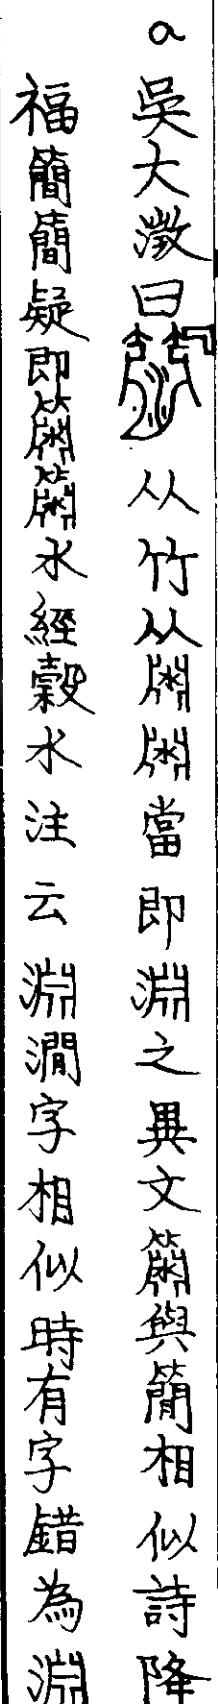 a 吳大澂曰从竹从當即淵之異文與簡相似詩降
福簡簡疑即水經穀水注云淵澗字相似時有字錯為淵